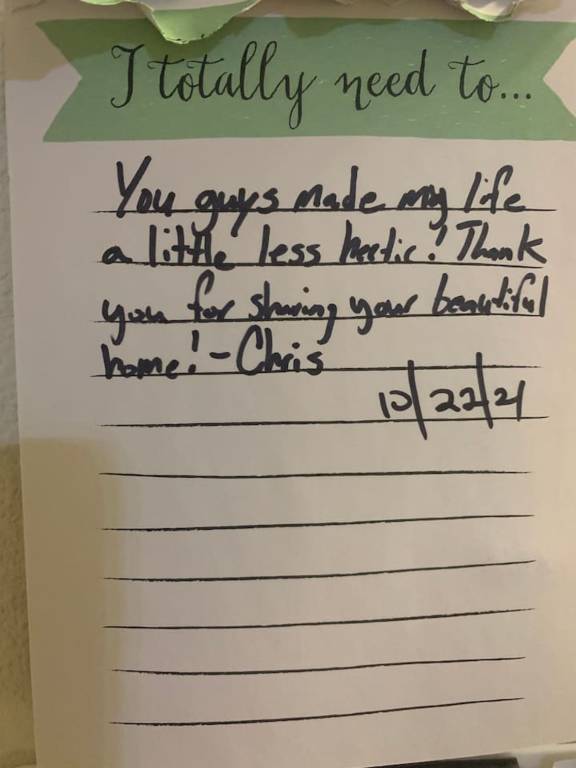 I totally need to...
You guys made my life
a little less hectic! Thank
you for sharing your beautiful
home! - Chris
10/22/21